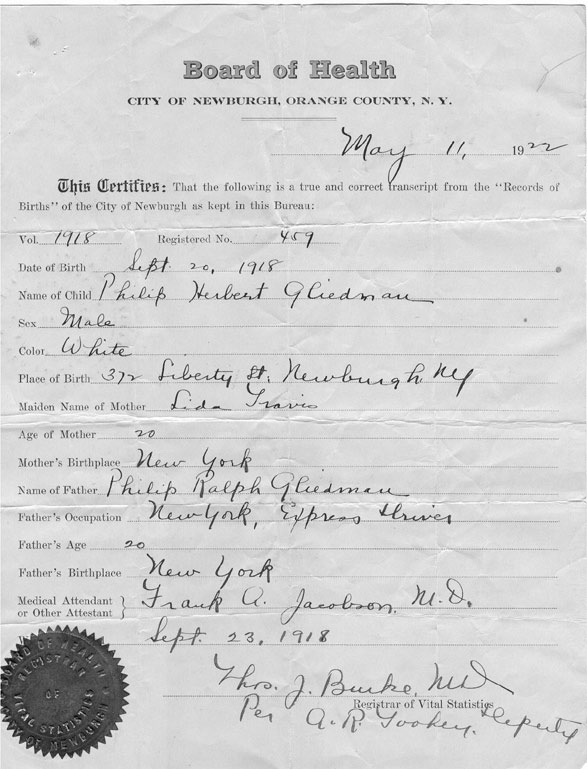 Board of Health
CITY OF NEWBURGH, ORANGE COUNTY, N. Y.
May 11, 1922
This Certifies: That the following is a true and correct transcript from the "Records of
Births" of the City of Newburgh as kept in this Bureau:
Vol. 1918 Registered No. 459
Date of Birth Sept. 20, 1918
Name of Child Philip Herbert Gliedman
Sex Male
Color White
Place of Birth 372 Liberty St. Newburgh NY
Maiden Name of Mother Lida Travis
Age of Mother 20
Mother's Birthplace New York
Name of Father Philip Ralph Gliedman
Father's Occupation New York, Express Driver
Father's Age 20
Father's Birthplace New York
Medical Attendant
or Other Attestant } Frank A. Jacobson, M.D.
Sept. 23, 1918
Thos. J. Burke, MD
Registrar of Vital Statistics
Per A. R. Tookey, Deputy
BOARD OF HEALTH
REGISTRAR
OF
VITAL STATISTICS
OF NEWBURGH